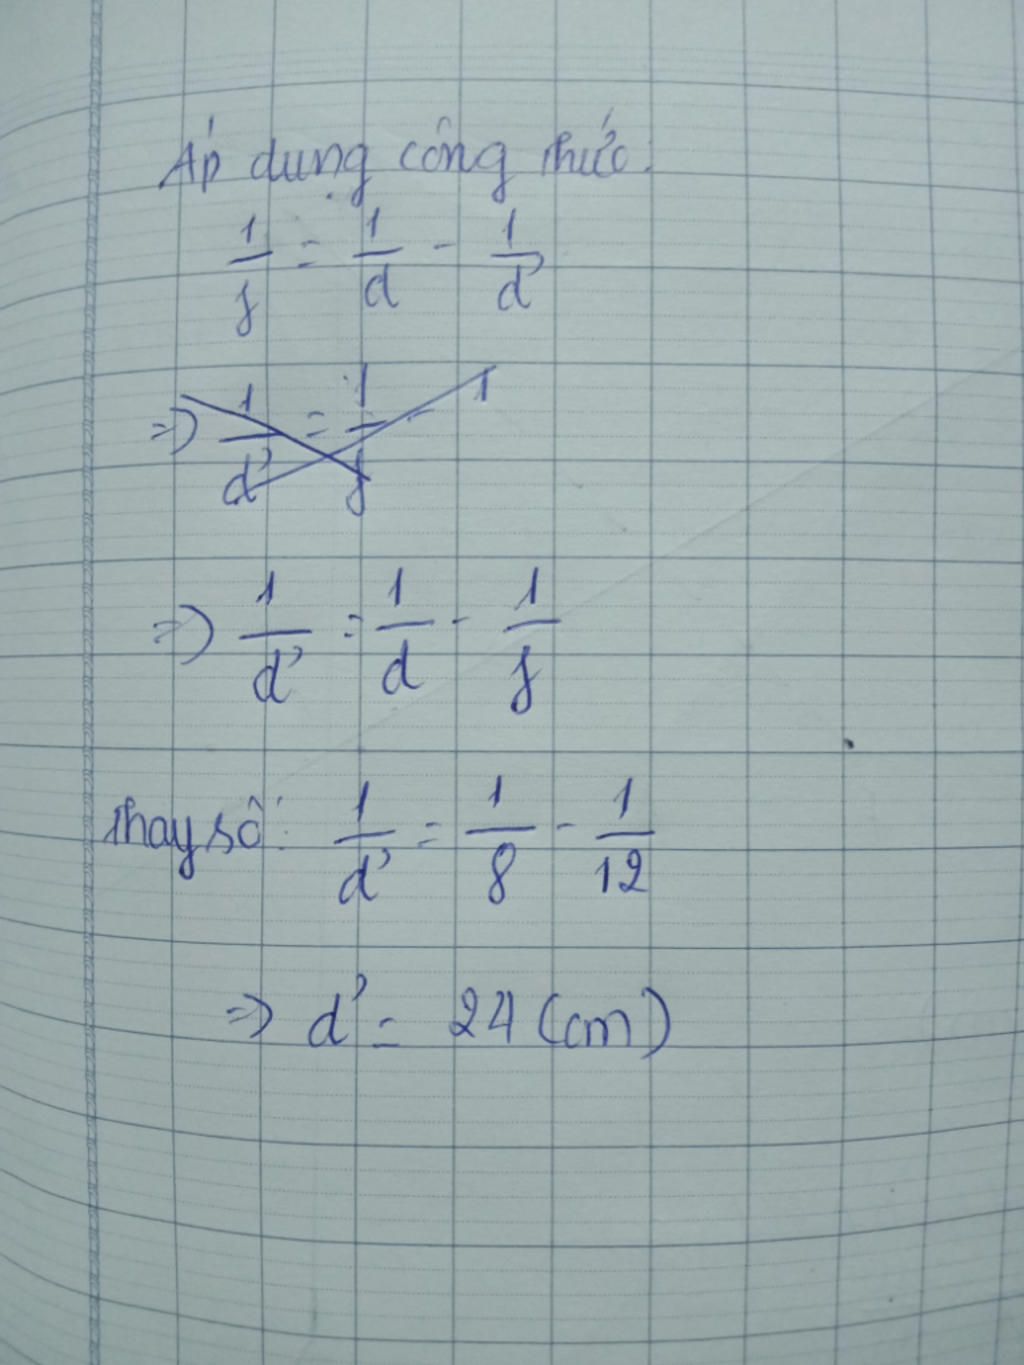 Áp dụng công thức:
1/f = 1/d - 1/d'
=> 1/d' = 1/f - 1
=> 1/d' = 1/d - 1/f
Thay số: 1/d' = 1/8 - 1/12
=> d' = 24 (cm)